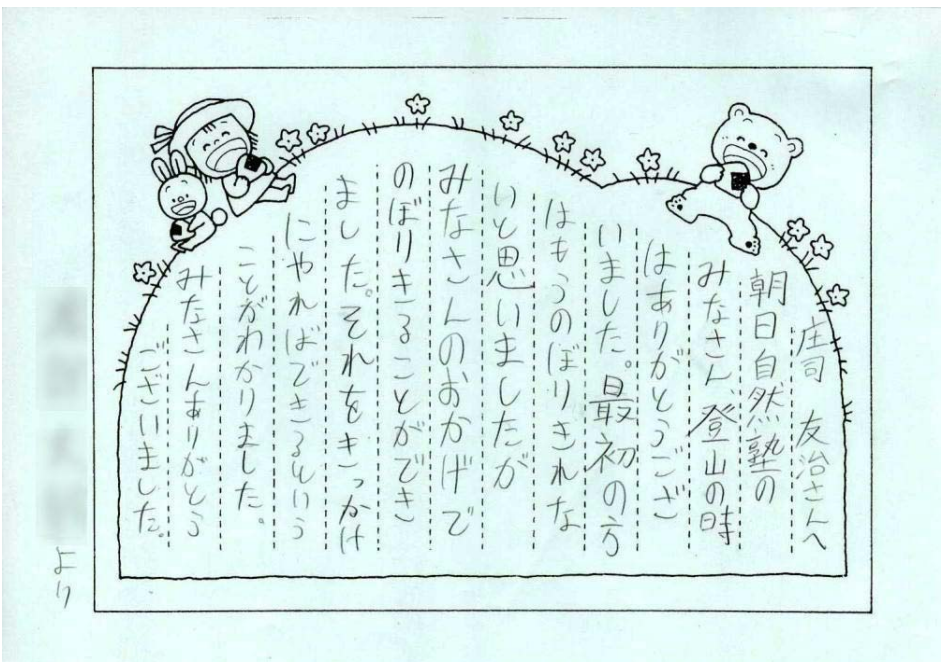 庄司 友治さんへ
朝日自然塾の
みなさん、登山の時
はありがとうござ
いました。最初の方
はもうのぼりきれな
いと思いましたが
みなさんのおかげで
のぼりきることができ
ました。それをきっかけ
にやればできるという
ことがわかりました。
みなさんありがとう
ございました。
より